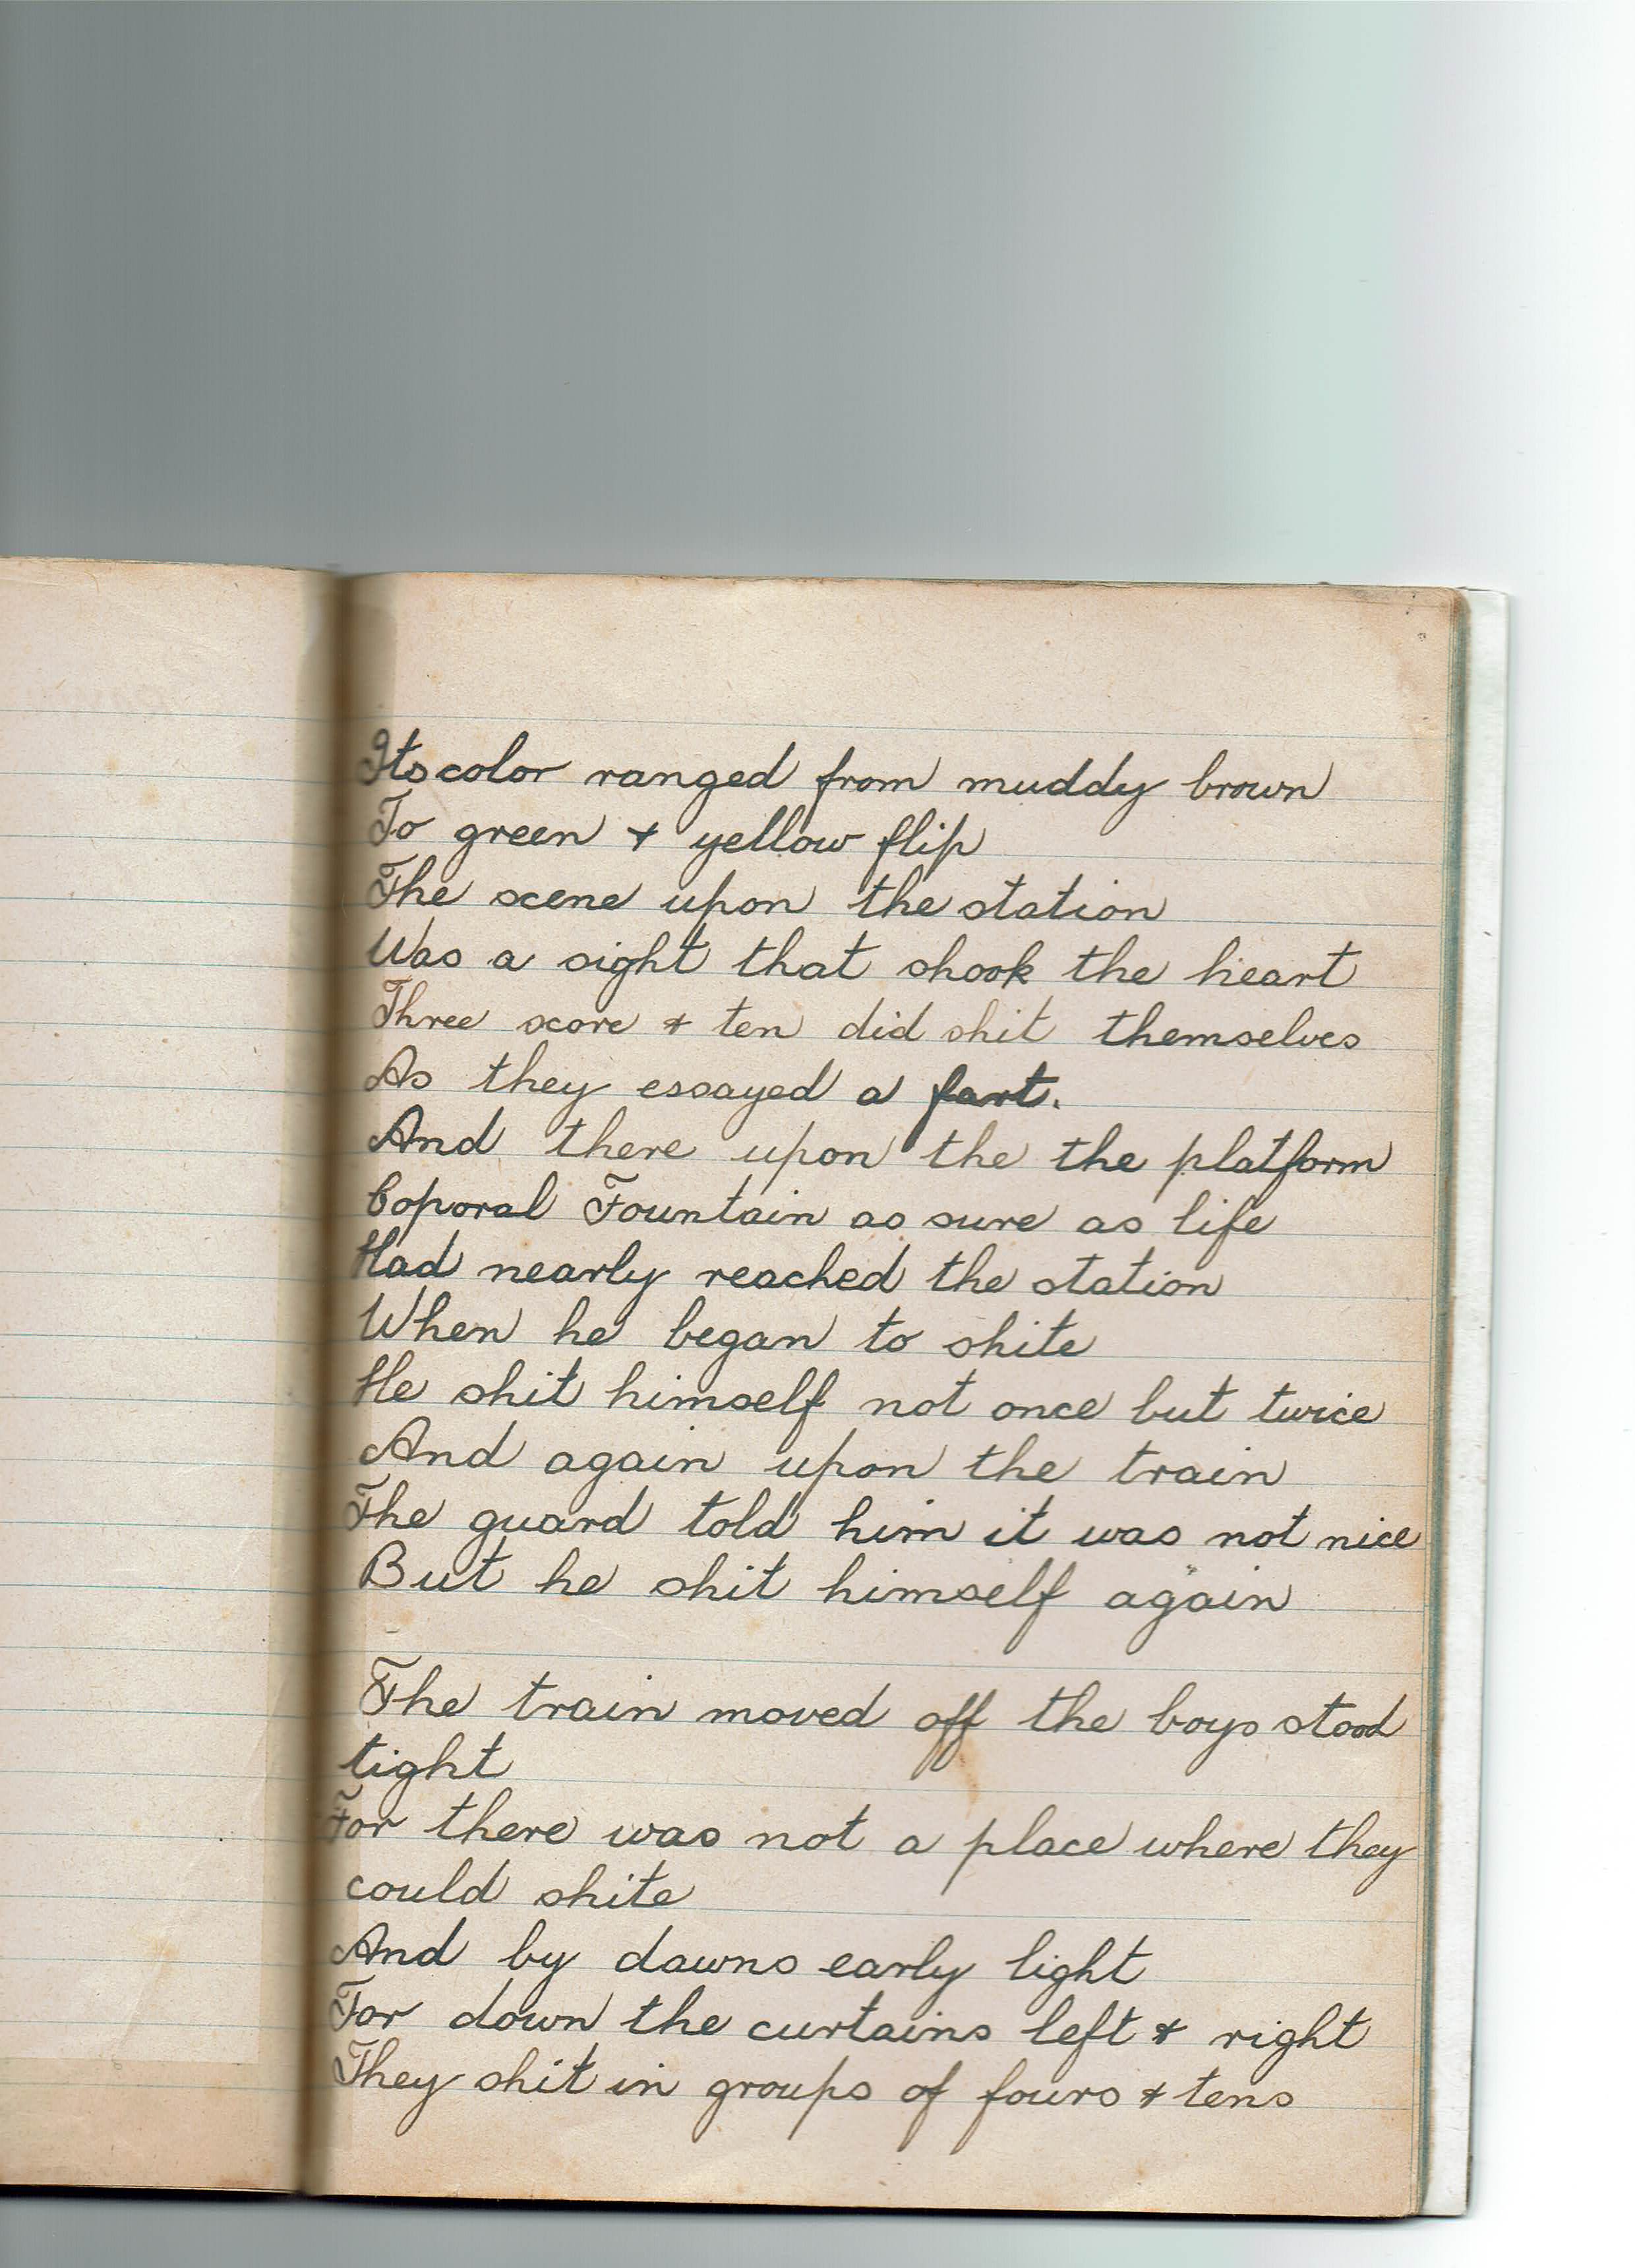 Its color ranged from muddy brown
To green & yellow flip
The scene upon the station
Was a sight that shook the heart
Three score & ten did shit themselves
As they essayed a fart.
And there upon the the platform
Coporal Fountain as sure as life
Had nearly reached the station
When he began to shite
He shit himself not once but twice
And again upon the train
The guard told him it was not nice
But he shit himself again
The train moved off the boys stood
tight
For there was not a place where they
could shite
And by dawns early light
For down the curtains left & right
They shit in groups of fours & tens